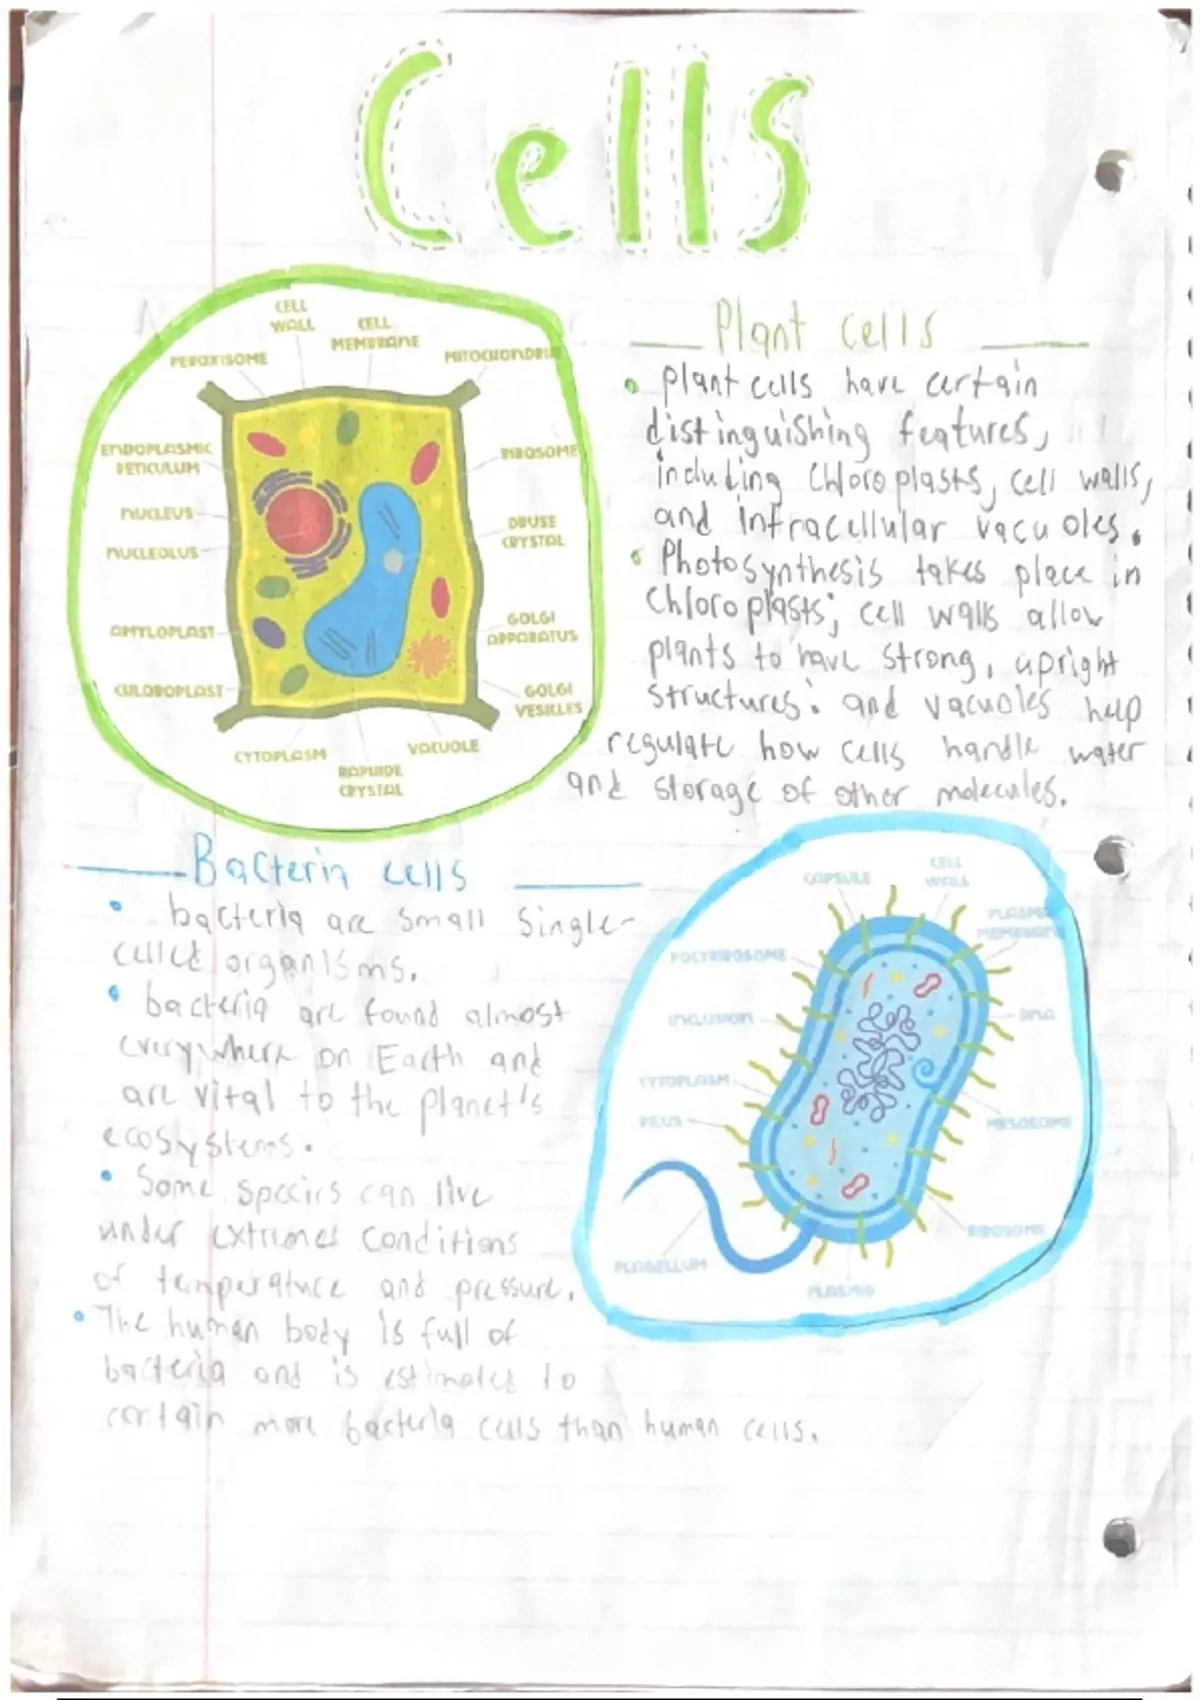 Cells
CELL
WALL
CELL
MEMBRANE
PEROXISOME
MITOCHONDRI
ENDOPLASMIC
RETICULUM
RIBOSOME
NUCLEUS
NUCLEOLUS
DRUSE
CRYSTAL
AMYLOPLAST
GOLGI
APPARATUS
CHLOROPLAST
GOLGI
VESICLES
CYTOPLASM
VACUOLE
RAPHIDE
CRYSTAL
Plant cells
• plant cells have certain
distinguishing features,
including chloroplasts, cell walls,
and intracellular vacuoles.
• Photosynthesis takes place in
chloroplasts; cell walls allow
plants to have strong, upright
structures: and vacuoles help
regulate how cells handle water
and storage of other molecules.
Bacteria cells
• bacteria are small single-
celled organisms.
• bacteria are found almost
everywhere on Earth and
are vital to the planet's
ecosystems.
• Some species can live
under extremes conditions
of temperature and pressure.
• The human body is full of
bacteria and is estimated to
contain more bacteria cells than human cells.
CAPSULE
CELL
WALL
PLASMA
MEMBRANE
POLYRIBOSOME
INCLUSION
DNA
CYTOPLASM
PILUS
MESOSOME
RIBOSOME
FLAGELLUM
PLASMID